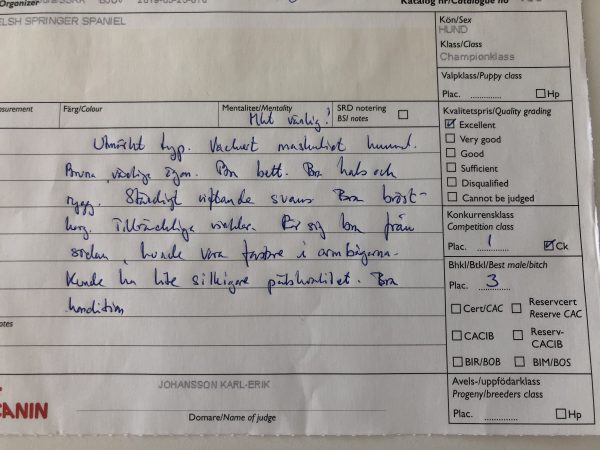 Organizer
SSRK
Katalog nr/Catalogue no
ELSH SPRINGER SPANIEL
Kön/Sex
HUND
Klass/Class
Championklass
Valpklass/Puppy class
Plac. Hp
surement Färg/Colour Mentalitet/Mentality SRD notering
BSI notes
Mkt vänlig!
Utmärkt typ. Vackert maskulint huvud.
Bruna, vänliga ögon. Bra bett. Bra hals och
rygg. Ständigt viftande svans Bra bröst-
korg. Tillräckliga vinklar. Rör sig bra från
sidan, kunde vara fastare i armbågarna.
Kunde ha lite silkigare pälskvalitet. Bra
kondition
Kvalitetspris/Quality grading
Excellent
Very good
Good
Sufficient
Disqualified
Cannot be judged
Konkurrensklass
Competition class
Plac. 1 Ck
Bhkl/Btkl/Best male/bitch
Plac. 3
Cert/CAC Reservcert
Reserve CAC
CACIB Reserv-
CACIB
BIR/BOB BIM/BOS
Avels-/uppfödarklass
Progeny/breeders class
Plac. Hp
otes
JOHANSSON KARL-ERIK
Domare/Name of judge
CANIN